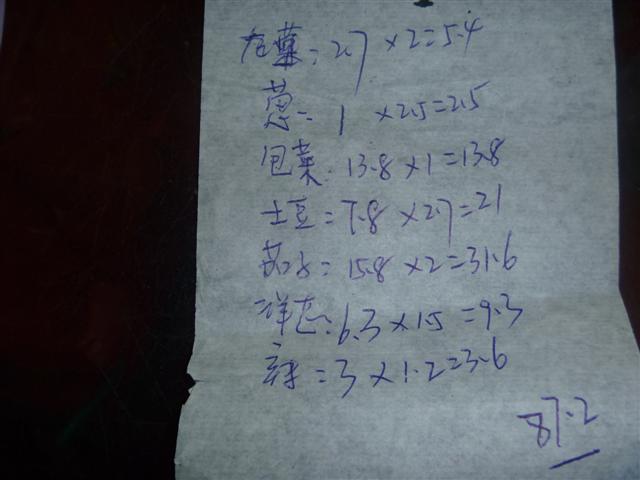 白菜：2.7×2=5.4
葱=1×2.5=2.5
包菜：13.8×1=13.8
土豆=7.8×2.7=21
茄子=15.8×2=31.6
洋葱：6.3×1.5=9.3
=3×1.2=3.6
87.2